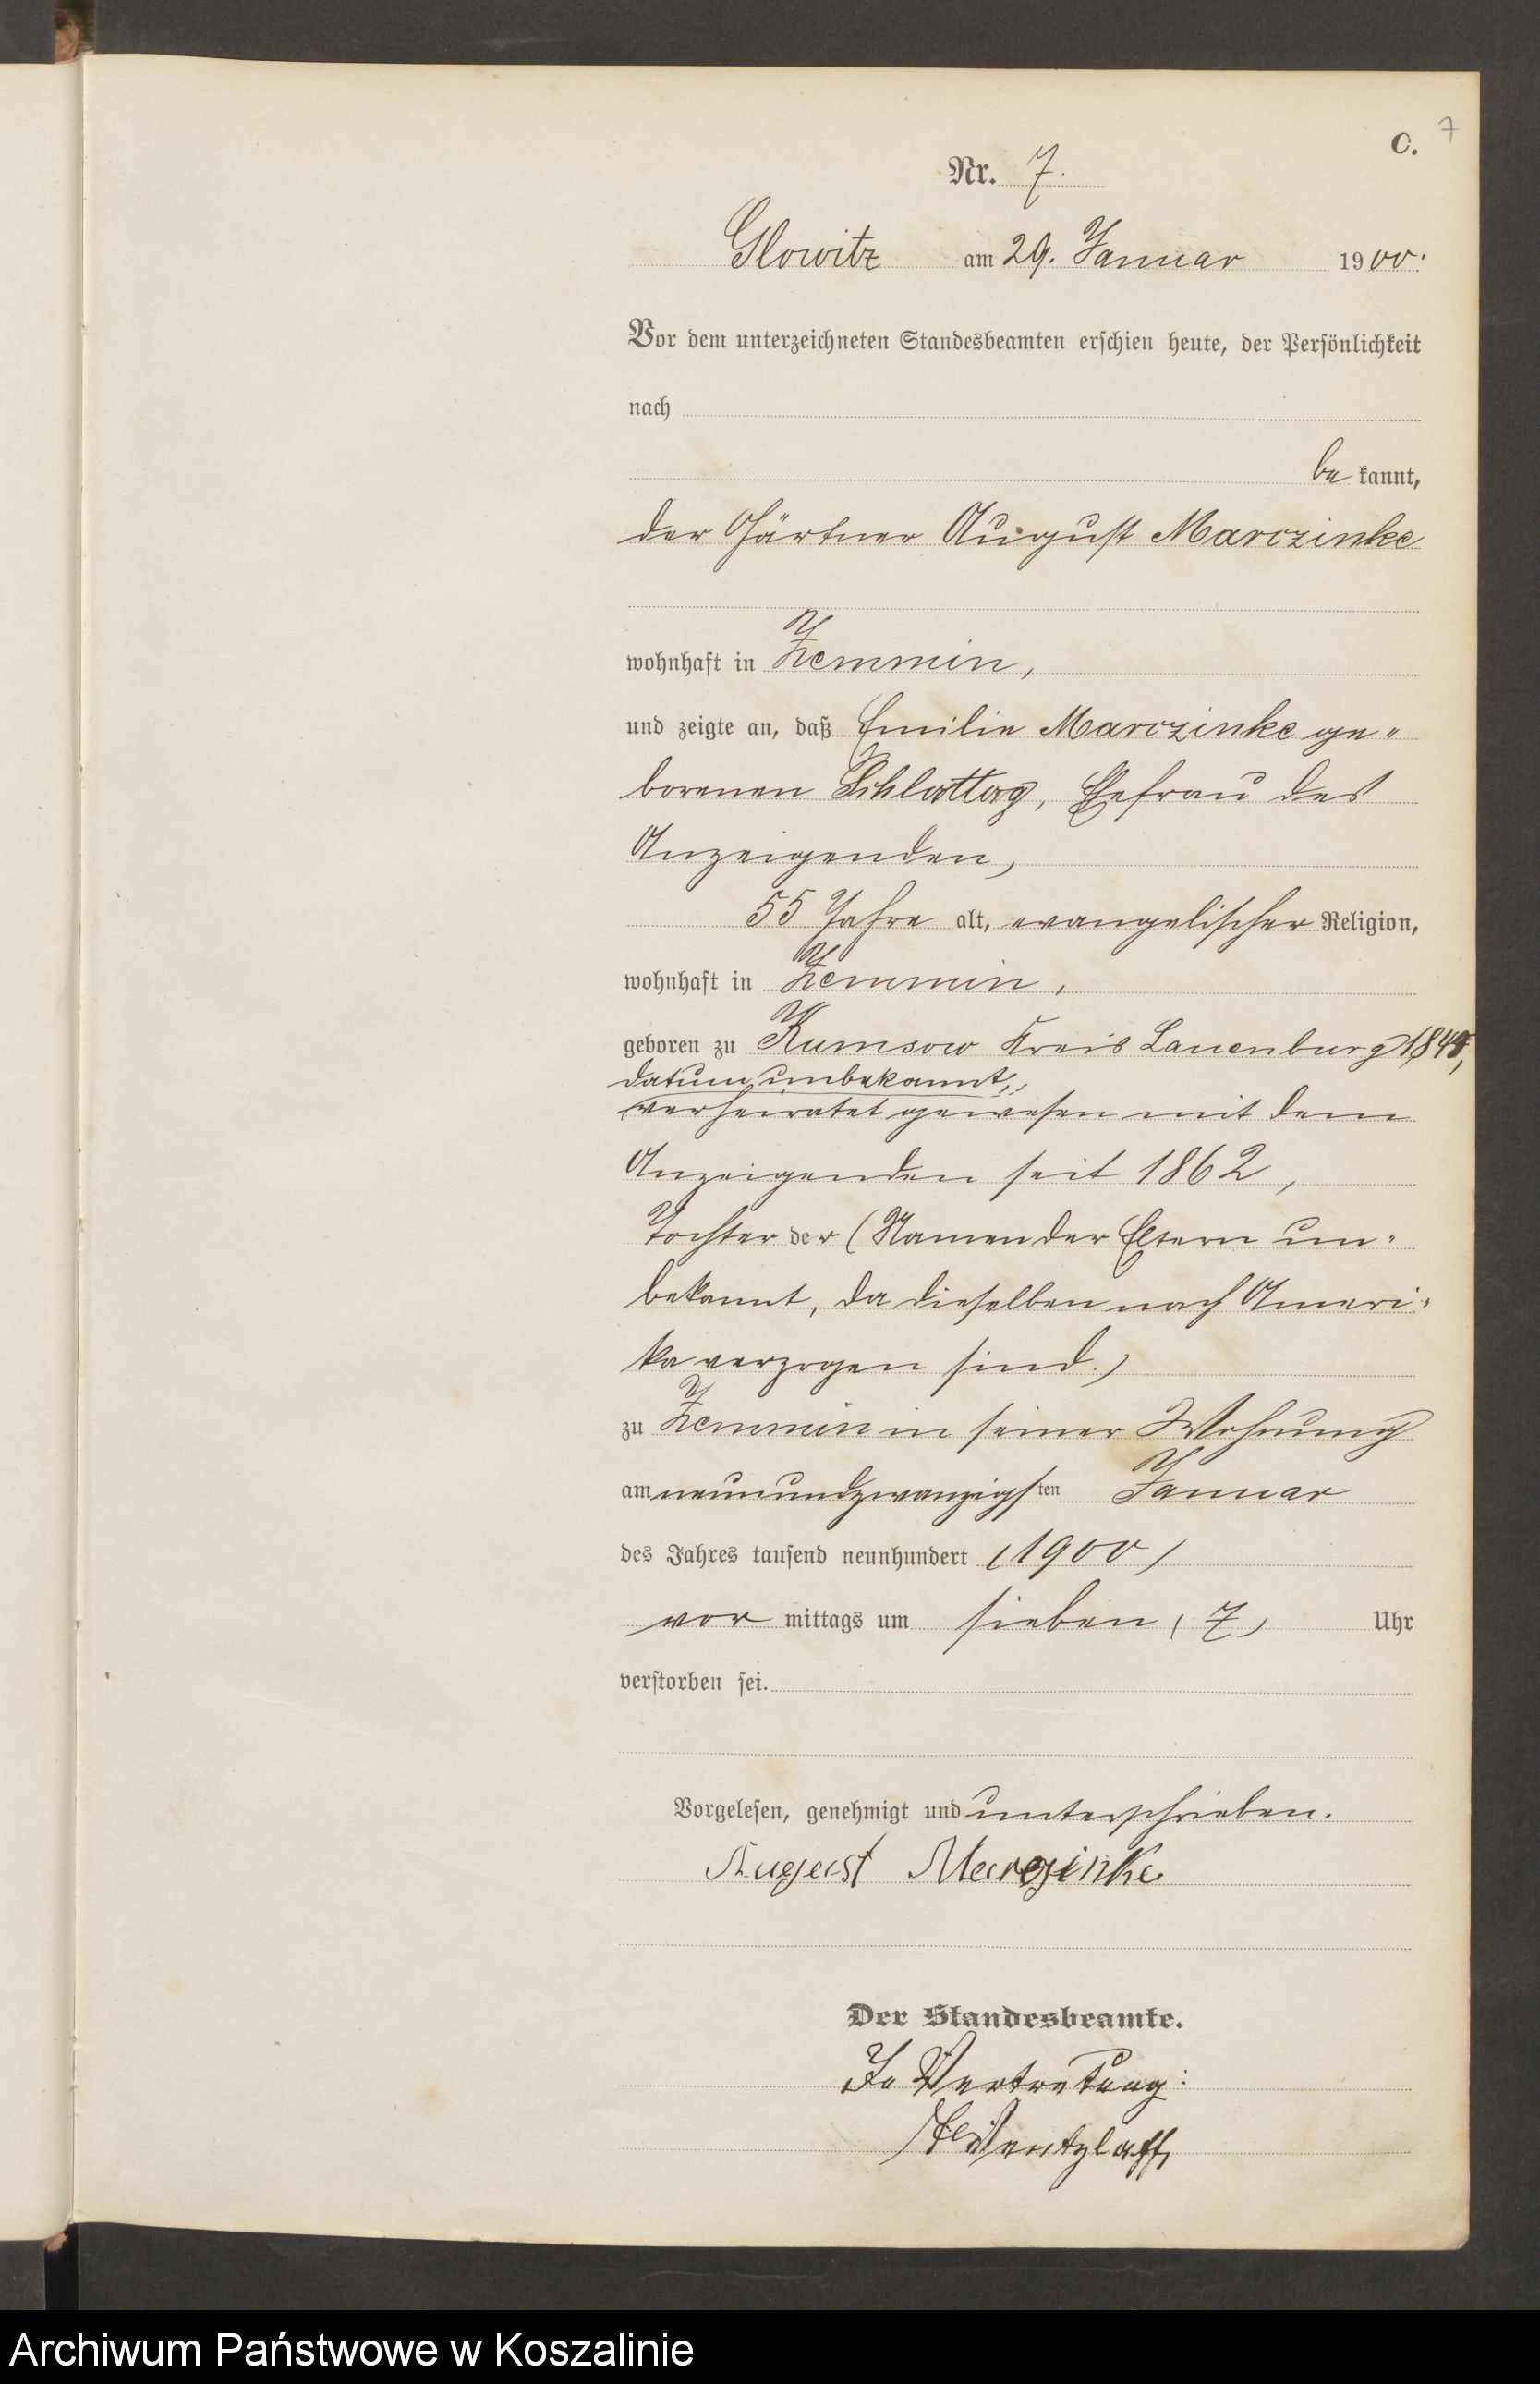 7
C.
Nr. 7.
Glowitz am 29. Januar 1900.
Vor dem unterzeichneten Standesbeamten erschien heute, der Persönlichkeit
nach
be kannt,
der Gärtner August Marczinke
wohnhaft in Zemmin,
und zeigte an, daß Emilie Marczinke ge-
borenen Schlattag, Ehefrau des
Anzeigenden,
55 Jahre alt, evangelischer Religion,
wohnhaft in Zemmin,
geboren zu Rumsow Kreis Lauenburg
datum unbekannt,
verheiratet gewesen mit dem
Anzeigenden seit 1862,
Tochter der (Namen der Eltern un-
bekannt, da dieselben nach Ameri-
ka verzogen sind.)
zu Zemmin in seiner Wohnung
am neunundzwanzigsten Januar
des Jahres tausend neunhundert (1900)
vor mittags um sieben (7) Uhr
verstorben sei.
Vorgelesen, genehmigt und unterschrieben.
August Marczinke
Der Standesbeamte.
In Vertretung:
Wentzlaff
Archiwum Państwowe w Koszalinie